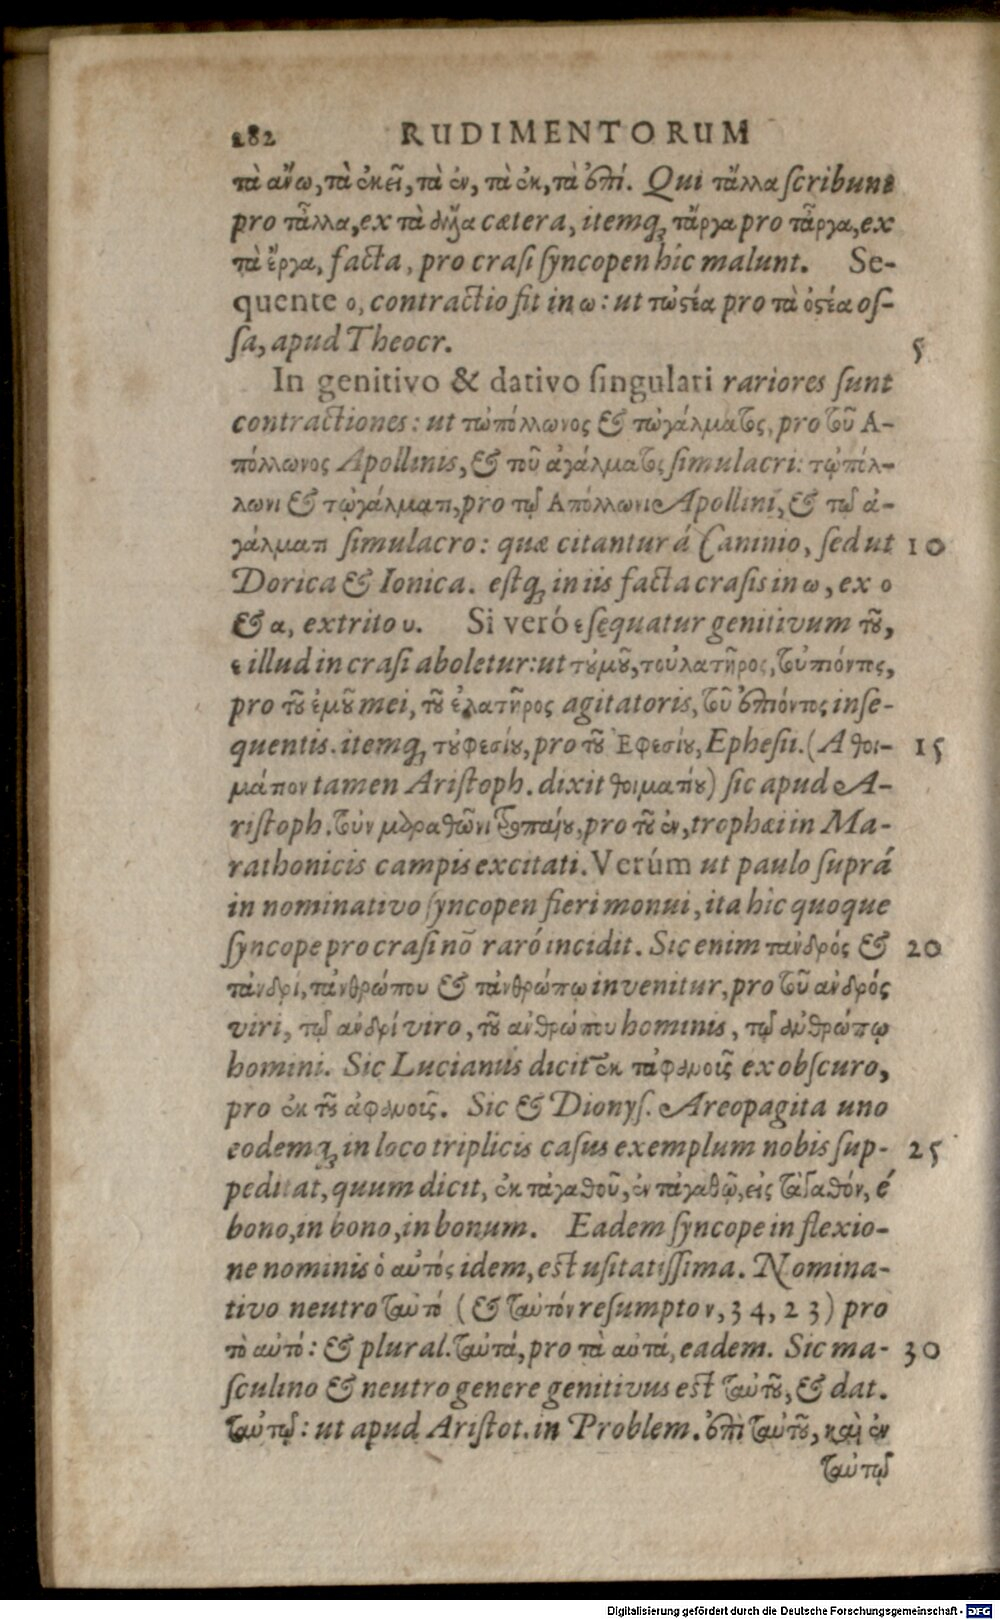 282 RUDIMENTORUM
τὰ ἄνω, τὰ ἐκεῖ, τὰ ἐν, τὰ ἐκ, τὰ ἐπί. Qui τἄλλα scribunt
pro τἆλλα, ex τὰ ἄλλα cætera, itemq; τἄργα pro τἆργα, ex
τὰ ἔργα, facta, pro crasi syncopen hic malunt. Se-
quente ο, contractio fit in ω: ut τὠστέα pro τὰ ὀστέα os-
sa, apud Theocr. 5
In genitivo & dativo singulari rariores sunt
contractiones: ut τὠπόλλωνος & τὠγάλματος, pro τοῦ Α-
πόλλωνος Apollinis, & τοῦ ἀγάλματος simulacri: τᾠπόλ-
λωνι & τᾠγάλματι, pro τῷ Απόλλωνι Apollini, & τῷ ἀ-
γάλματι simulacro: quæ citantur á Caninio, sed ut 10
Dorica & Ionica. estq; in iis facta crasis in ω, ex ο
& α, extrito υ. Si veró ε sequatur genitivum τοῦ,
ε illud in crasi aboletur: ut τοὐμοῦ, τοὐλατῆρος, τοὐπιόντος,
pro τοῦ ἐμοῦ mei, τοῦ ἐλατῆρος agitatoris, τοῦ ἐπιόντος inse-
quentis. itemq; τοὐφεσίου, pro τοῦ Ἐφεσίου, Ephesii. (A θοι- 15
μάτιον tamen Aristoph. dixit θοιματίου) sic apud A-
ristoph. τοὐν μαραθῶνι τροπαίου, pro τοῦ ἐν, trophæi in Ma-
rathonicis campis excitati. Verúm ut paulo suprá
in nominativo syncopen fieri monui, ita hic quoque
syncope pro crasi nō raró incidit. Sic enim τἀνδρός & 20
τἀνδρί, τἀνθρώπου & τἀνθρώπῳ invenitur, pro τοῦ ἀνδρός
viri, τῷ ἀνδρί viro, τοῦ ἀνθρώπου hominis, τῷ ἀνθρώπῳ
homini. Sic Lucianus dicit ἐκ τἀφανοῦς ex obscuro,
pro ἐκ τοῦ ἀφανοῦς. Sic & Dionys. Areopagita uno
eodemq; in loco triplicis casus exemplum nobis sup- 25
peditat, quum dicit, ἐκ τἀγαθοῦ, ἐν τἀγαθῷ, εἰς τἀγαθόν, é
bono, in bono, in bonum. Eadem syncope in flexio-
ne nominis ὁ αὐτός idem, est usitatissima. Nomina-
tivo neutro ταὐτό (& ταὐτόν resumpto ν, 34, 23) pro
τὸ αὐτό: & plural. ταὐτά, pro τὰ αὐτά, eadem. Sic ma- 30
sculino & neutro genere genitivus est ταὐτοῦ, & dat.
ταὐτῷ: ut apud Aristot. in Problem. ἐπὶ ταὐτοῦ, καὶ ἐν
ταὐτῷ
Digitalisierung gefördert durch die Deutsche Forschungsgemeinschaft - DFG